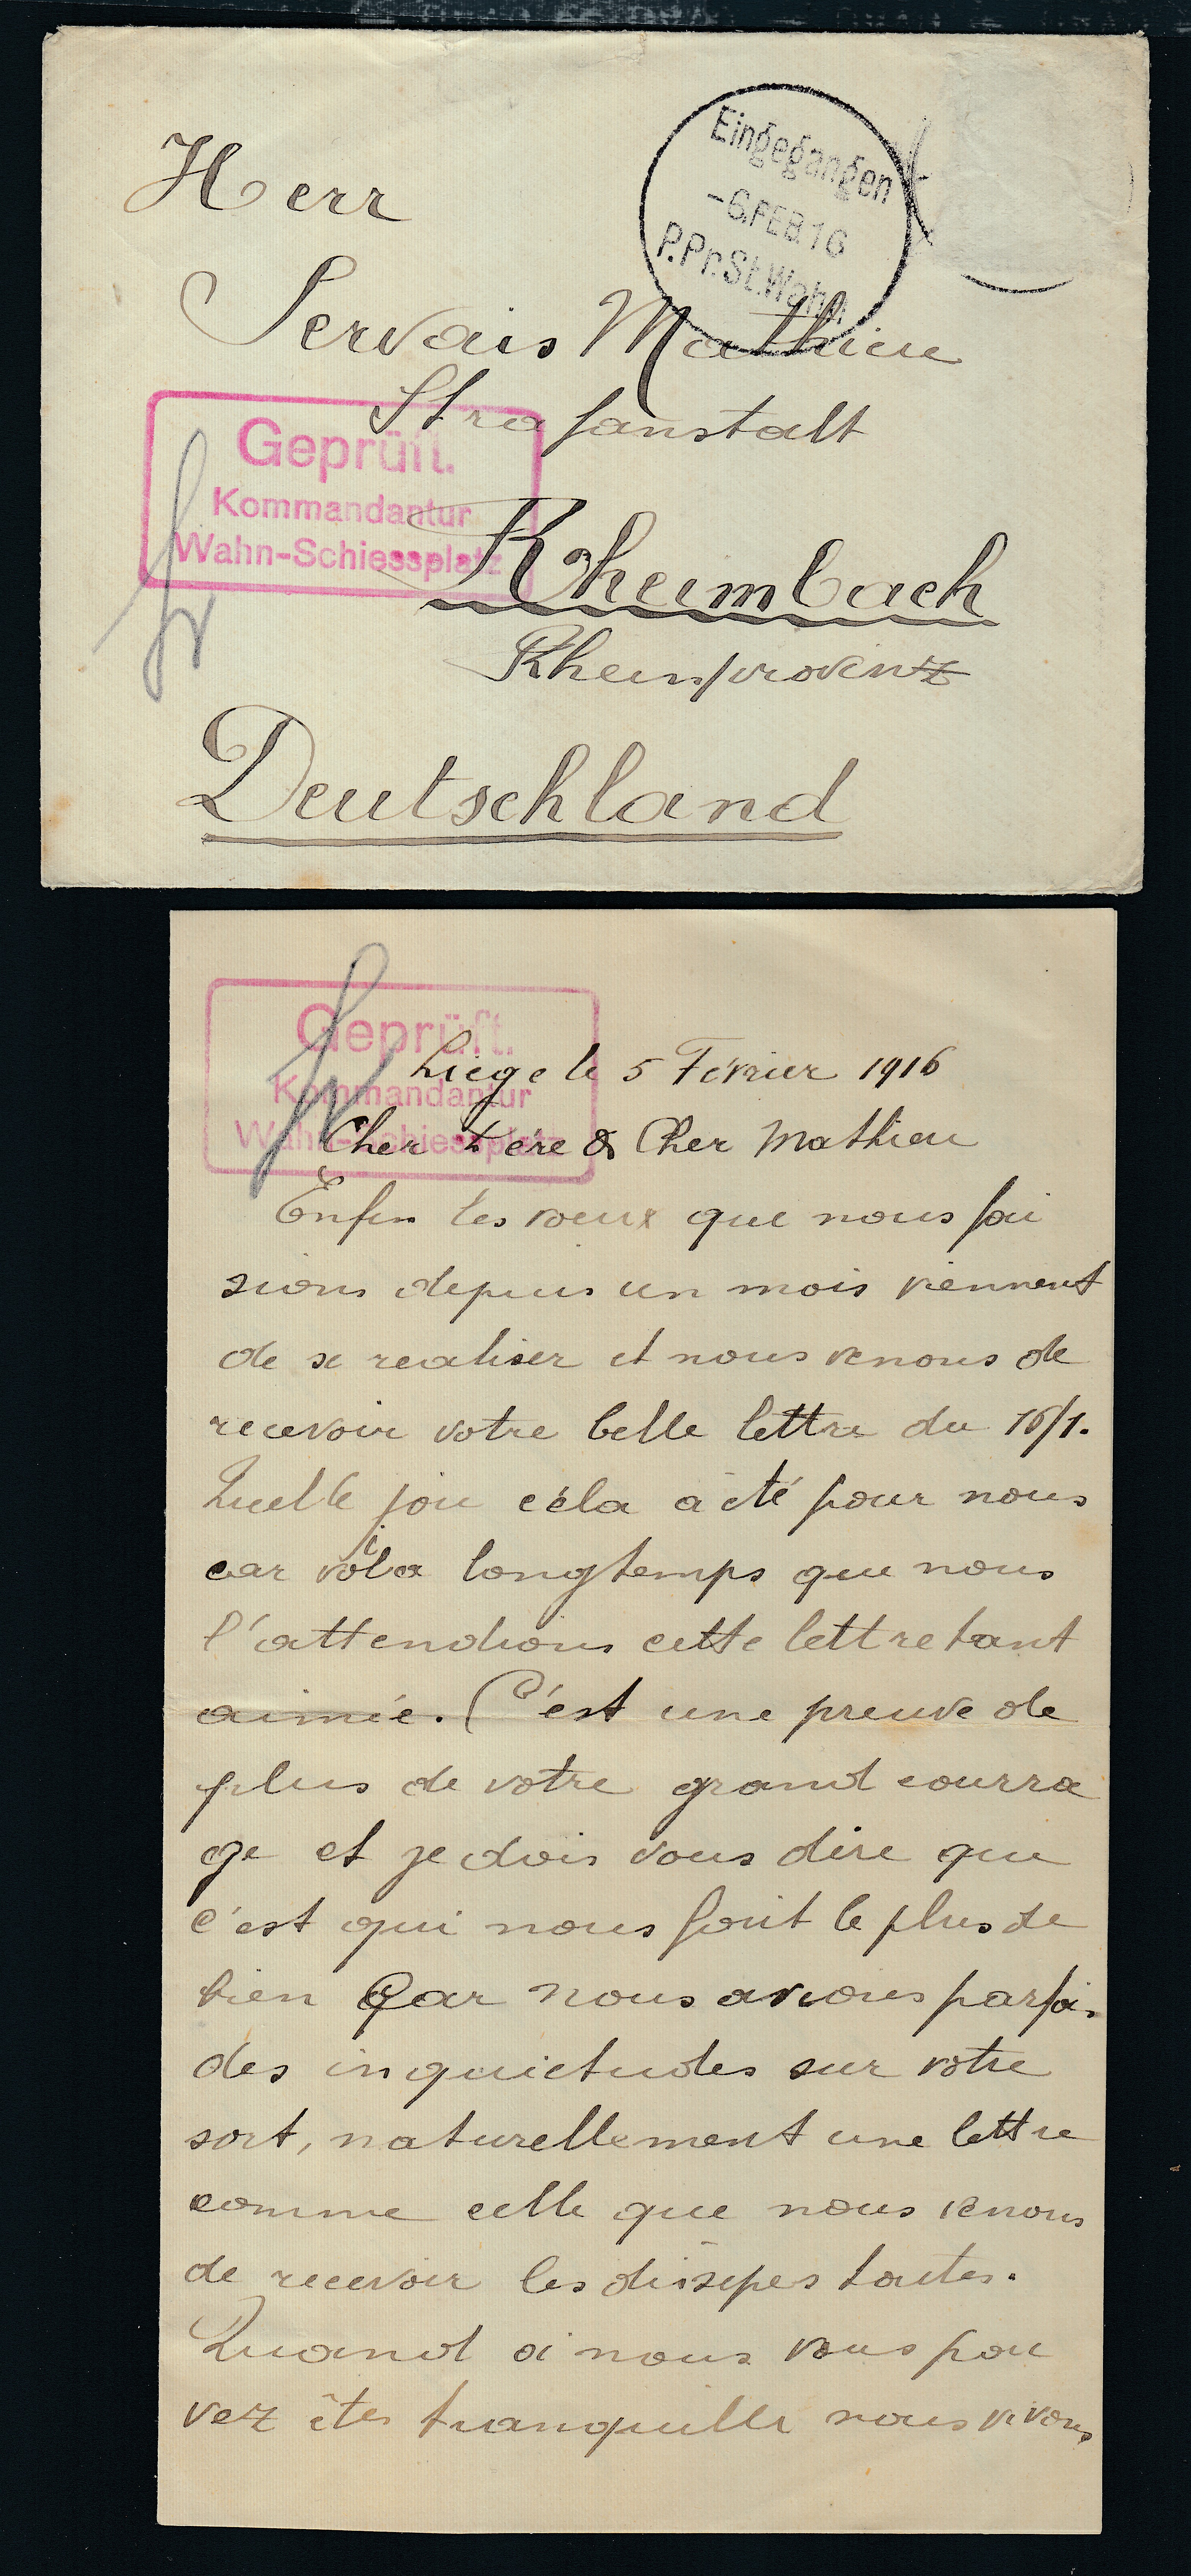 Herr
Eingegangen
-6.FEB.16
P.Pr.St.Wahn
Servais Mathieu
Strafanstalt
Geprüft.
Kommandantur
Wahn-Schiessplatz
Rheimbach
Rheinprovinz
Deutschland
Geprüft.
Kommandantur
Wahn-Schiessplatz
Liege le 5 Février 1916
Cher Père & Cher Mathieu
Enfin les voeux que nous fai
sions depuis un mois viennent
de se realiser et nous venons de
recevoir votre belle lettre du 16/1.
Quelle joie cela a été pour nous
car voila longtemps que nous
l'attendions cette lettre tant
aimée. C'est une preuve de
plus de votre grand courra
ge et je dois vous dire que
c'est qui nous fait le plus de
bien Car nous avions parfois
des inquietudes sur votre
sort, naturellement une lettre
comme celle que nous venons
de recevoir les disipes toutes.
Quand à nous vous pou
vez êtes tranquille nous vivons